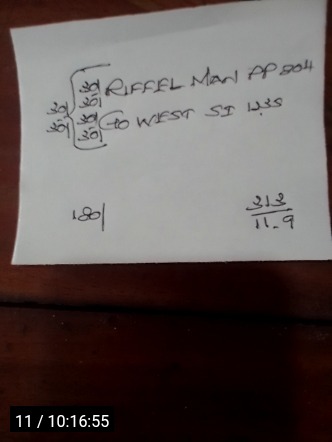 30/ 30/ RIFFEL MAN PP 204
30/
30/ 30/ GO WEST SI 1235
30/ 30/
180/ 313
11-9
11 / 10:16:55